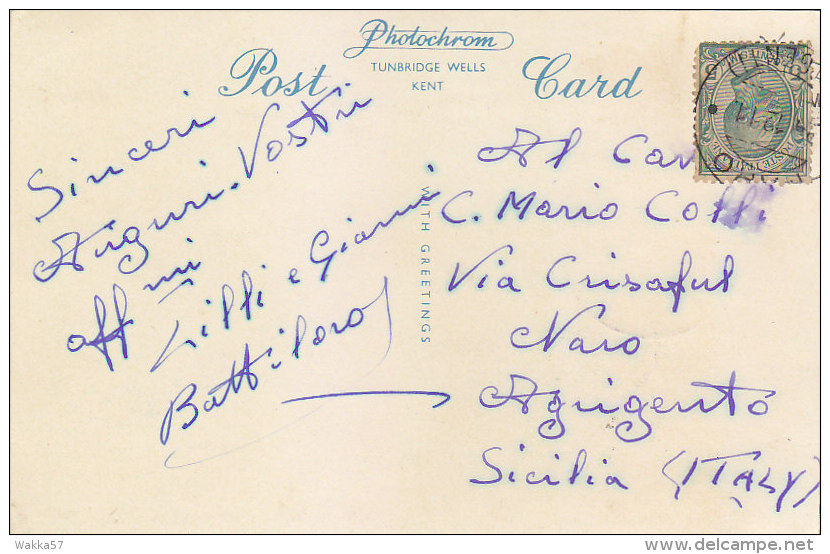 Photochrom
TUNBRIDGE WELLS
KENT
Post Card
Sinceri
Auguri. Vostri
aff mi
Lilli e Gianni
Battiloro
WITH GREETINGS
Al Cav
C. Mario Colli
Via Crisaful
Naro
Agrigento
Sicilia (ITALY)
POSTE ITALIANE
Wakka57
delcampe.net